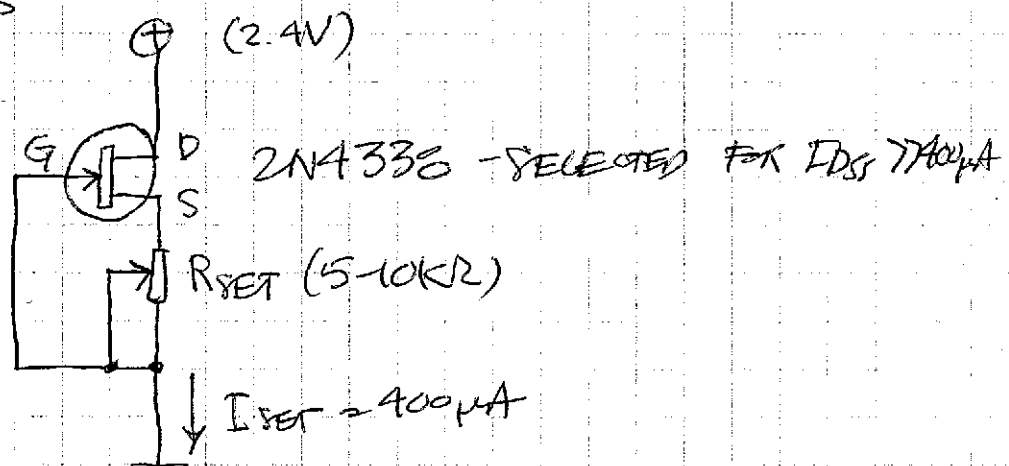 (2.4V)
G
D
2N4338 - SELECTED FOR IDSS >>400μA
S
RSET (5-10KΩ)
ISET = 400μA